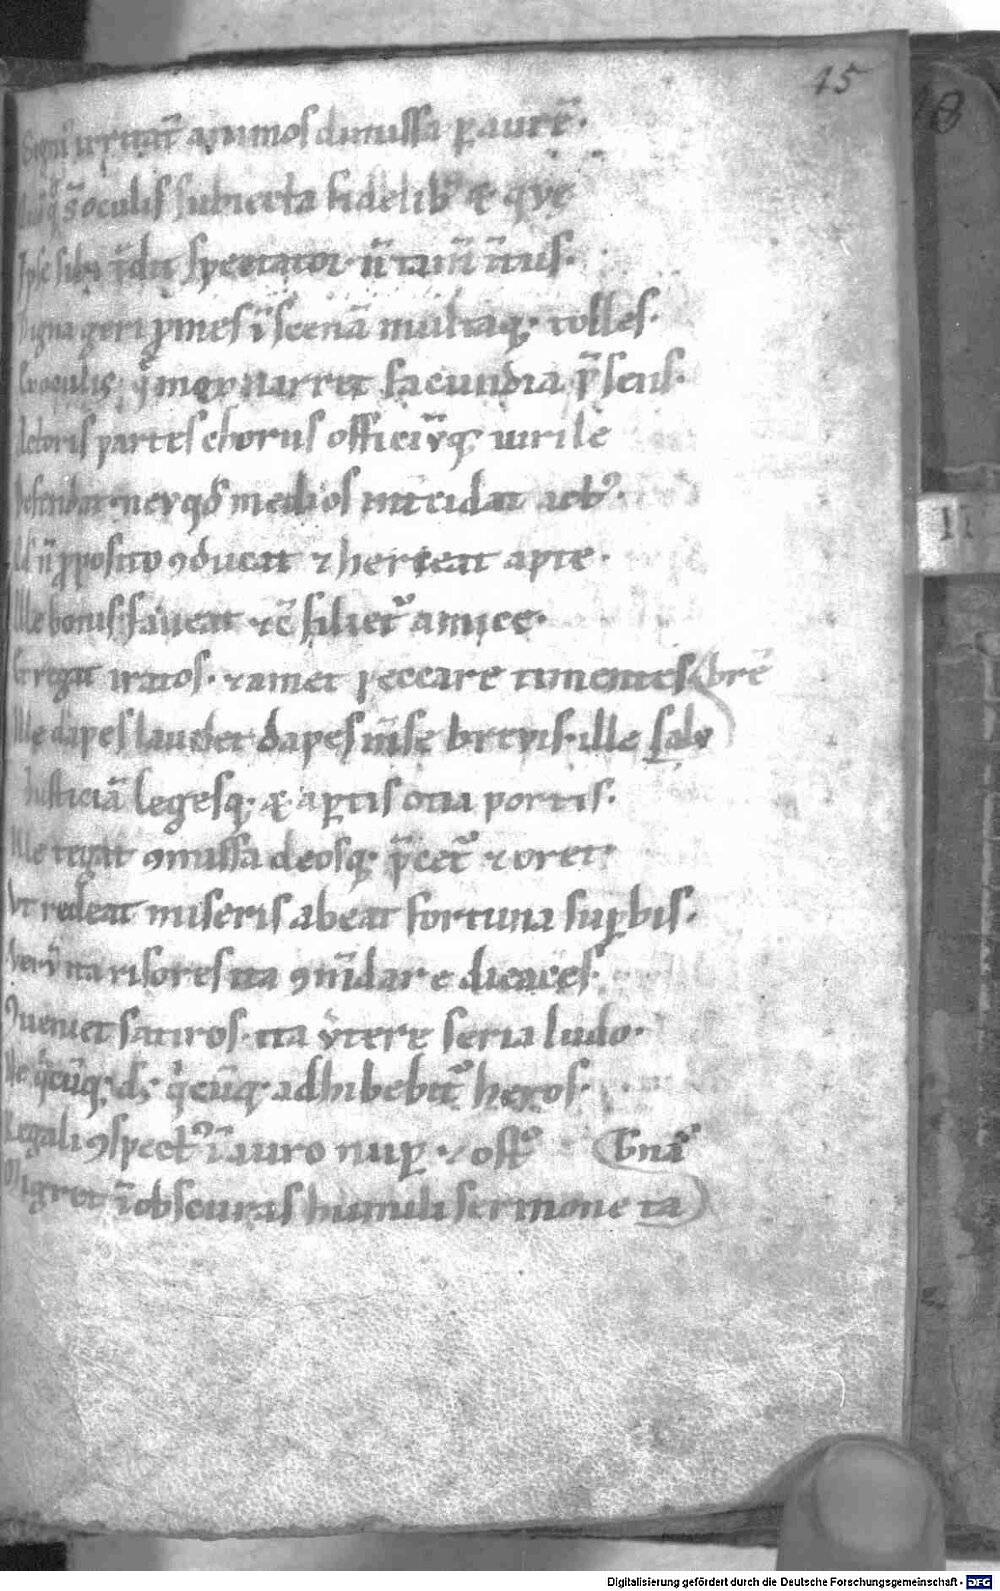 15
18
Segniꝰ irritāt animos dimissa p aurē·
oculis subiecta fidelibꝰ & quę
Ipse sibi t̄dit spectator· n̄ tam̄ n̄tus·
Digna geri p̱mes ī scenā multaq; tolles·
Ex oculis q̄ mox narret facundia p̄sens·
Actoris partes chorus officiūq; uirile
Defendat· neu qđ medios intcidat actꝰ·
n̄ p̱posito ꝯducat ⁊ hereat apte·
Ille bonis faueat ⁊ c̄silietᷣ amice·
Et regat iratos· ⁊ amet peccare timentes
brē
Ille dapes laudet dapes m̄se breuis· ille salu
Iusticiā legesq; & aptis otia portis·
Ille tegat ꝯmissa deosq; p̄cetᷣ ⁊ oret·
Vt redeat miseris abeat fortuna supbis·
Verū ita risores ita ꝯm̄dare dicaces·
Ꝯueniet satiros· ita ūtere seria ludo·
Ne q̇cūq; dꝫ q̇cūq; adhibebitᷣ heros·
Regali ꝯspectꝰ ī auro nup ⁊ ostᷣ
b̄nāˢ
Migret ī obscuras humili sermone ta
11
Digitalisierung gefördert durch die Deutsche Forschungsgemeinschaft - DFG